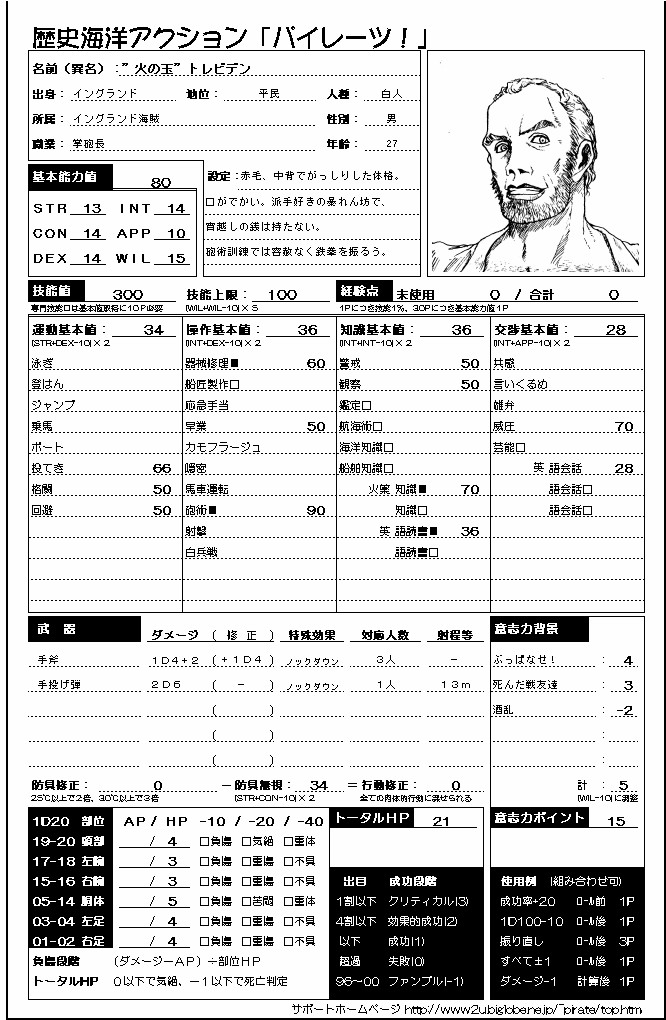 歴史海洋アクション「パイレーツ！」
名前（異名）：”火の玉”トレビデン
出身： イングランド 地位： 平民 人種： 白人
所属： イングランド海賊 性別： 男
職業： 掌砲長 年齢： 27
基本能力値 80
STR 13 INT 14
CON 14 APP 10
DEX 14 WIL 15
設定：赤毛、中背でがっしりした体格。
口がでかい。派手好きの暴れん坊で、
宵越しの銭は持たない。
砲術訓練では容赦なく鉄拳を振るう。
技能値 300 技能上限： 100 経験点 未使用 0 / 合計 0
専門技能□は基本値取得に10P必要 (WIL+WIL-10)×5 1Pにつき技能1%、30Pにつき基本能力値1P
運動基本値： 34 操作基本値： 36 知識基本値： 36 交渉基本値： 28
(STR+DEX-10)×2 (INT+DEX-10)×2 (INT+INT-10)×2 (INT+APP-10)×2
泳ぎ 器械修理■ 60 警戒 50 共感
登はん 船匠製作□ 観察 50 言いくるめ
ジャンプ 応急手当 鑑定□ 雄弁
乗馬 早業 50 航海術□ 威圧 70
ボート カモフラージュ 海洋知識□ 芸能□
投てき 66 隠密 船舶知識□ 英 語会話 28
格闘 50 馬車運転 火薬 知識■ 70 語会話□
回避 50 砲術■ 90 知識□ 語会話□
射撃 英 語読書■ 36
白兵戦 語読書□
武 器 ダメージ ( 修 正 ) 特殊効果 対応人数 射程等 意志力背景
手斧 1D4+2 (+1D4) ノックダウン 3人 － ぶっぱなせ！ ： 4
手投げ弾 2D6 ( － ) ノックダウン 1人 13m 死んだ戦友達 ： 3
( ) 酒乱 ： -2
( ) ：
( ) ：
防具修正： 0 －防具無視： 34 ＝行動修正： 0 計： 5
25℃以上で2倍、30℃以上で3倍 (STR+CON-10)×2 全ての肉体的行動に課せられる (WIL-10)に調整
1D20 部位 AP / HP -10 / -20 / -40 トータルHP 21 意志力ポイント 15
19-20 頭部 / 4 □負傷 □気絶 □重体
17-18 左腕 / 3 □負傷 □重傷 □不具
15-16 右腕 / 3 □負傷 □重傷 □不具 出目 成功段階 使用例 (組み合わせ可)
05-14 胴体 / 5 □負傷 □苦悶 □重体 1割以下 クリティカル(3) 成功率+20 ﾛｰﾙ前 1P
03-04 左足 / 4 □負傷 □重傷 □不具 4割以下 効果的成功(2) 1D100-10 ﾛｰﾙ後 1P
01-02 右足 / 4 □負傷 □重傷 □不具 以下 成功(1) 振り直し ﾛｰﾙ後 3P
負傷段階 (ダメージーAP) ÷部位HP 超過 失敗(0) すべて±1 ﾛｰﾙ後 1P
トータルHP 0以下で気絶、－1以下で死亡判定 96～00 ファンブル(-1) ダメージ-1 計算後 1P
サポートホームページ http://www2u.biglobe.ne.jp/~pirate/top.htm